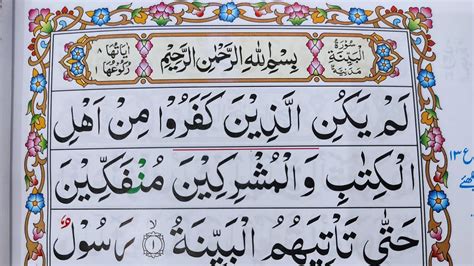 سُوْرَةُ الْبَيِّنَةِ مَدَنِيَّةٌ
بِسْمِ اللّٰهِ الرَّحْمٰنِ الرَّحِيْمِ
اٰيَاتُهَا ٨ رُكُوْعُهَا ١
لَمْ يَكُنِ الَّذِيْنَ كَفَرُوْا مِنْ اَهْلِ
الْكِتٰبِ وَالْمُشْرِكِيْنَ مُنْفَكِّيْنَ
حَتّٰى تَاْتِيَهُمُ الْبَيِّنَةُ ۙ‏ ١ رَسُوْلٌ
ع ١٣